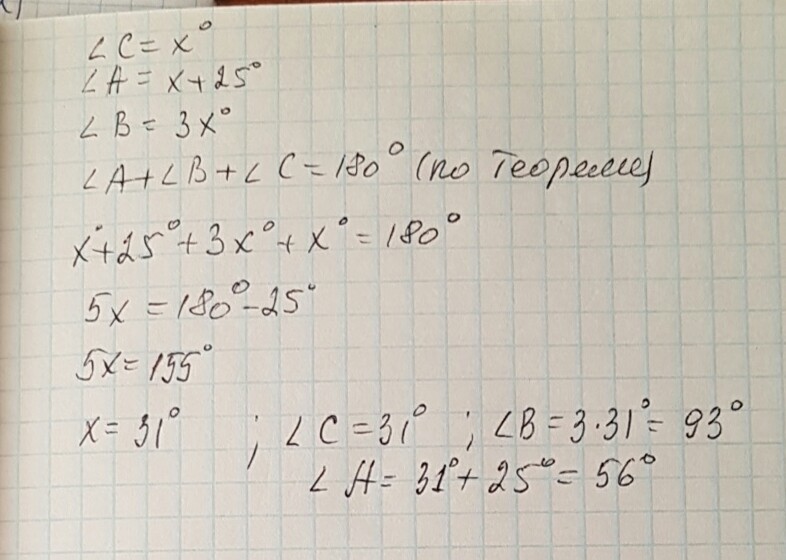 ∠C = x°
∠A = x + 25°
∠B = 3x°
∠A + ∠B + ∠C = 180° (по теореме)
x° + 25° + 3x° + x° = 180°
5x = 180° - 25°
5x = 155°
x = 31° ; ∠C = 31° ; ∠B = 3·31° = 93°
∠A = 31° + 25° = 56°